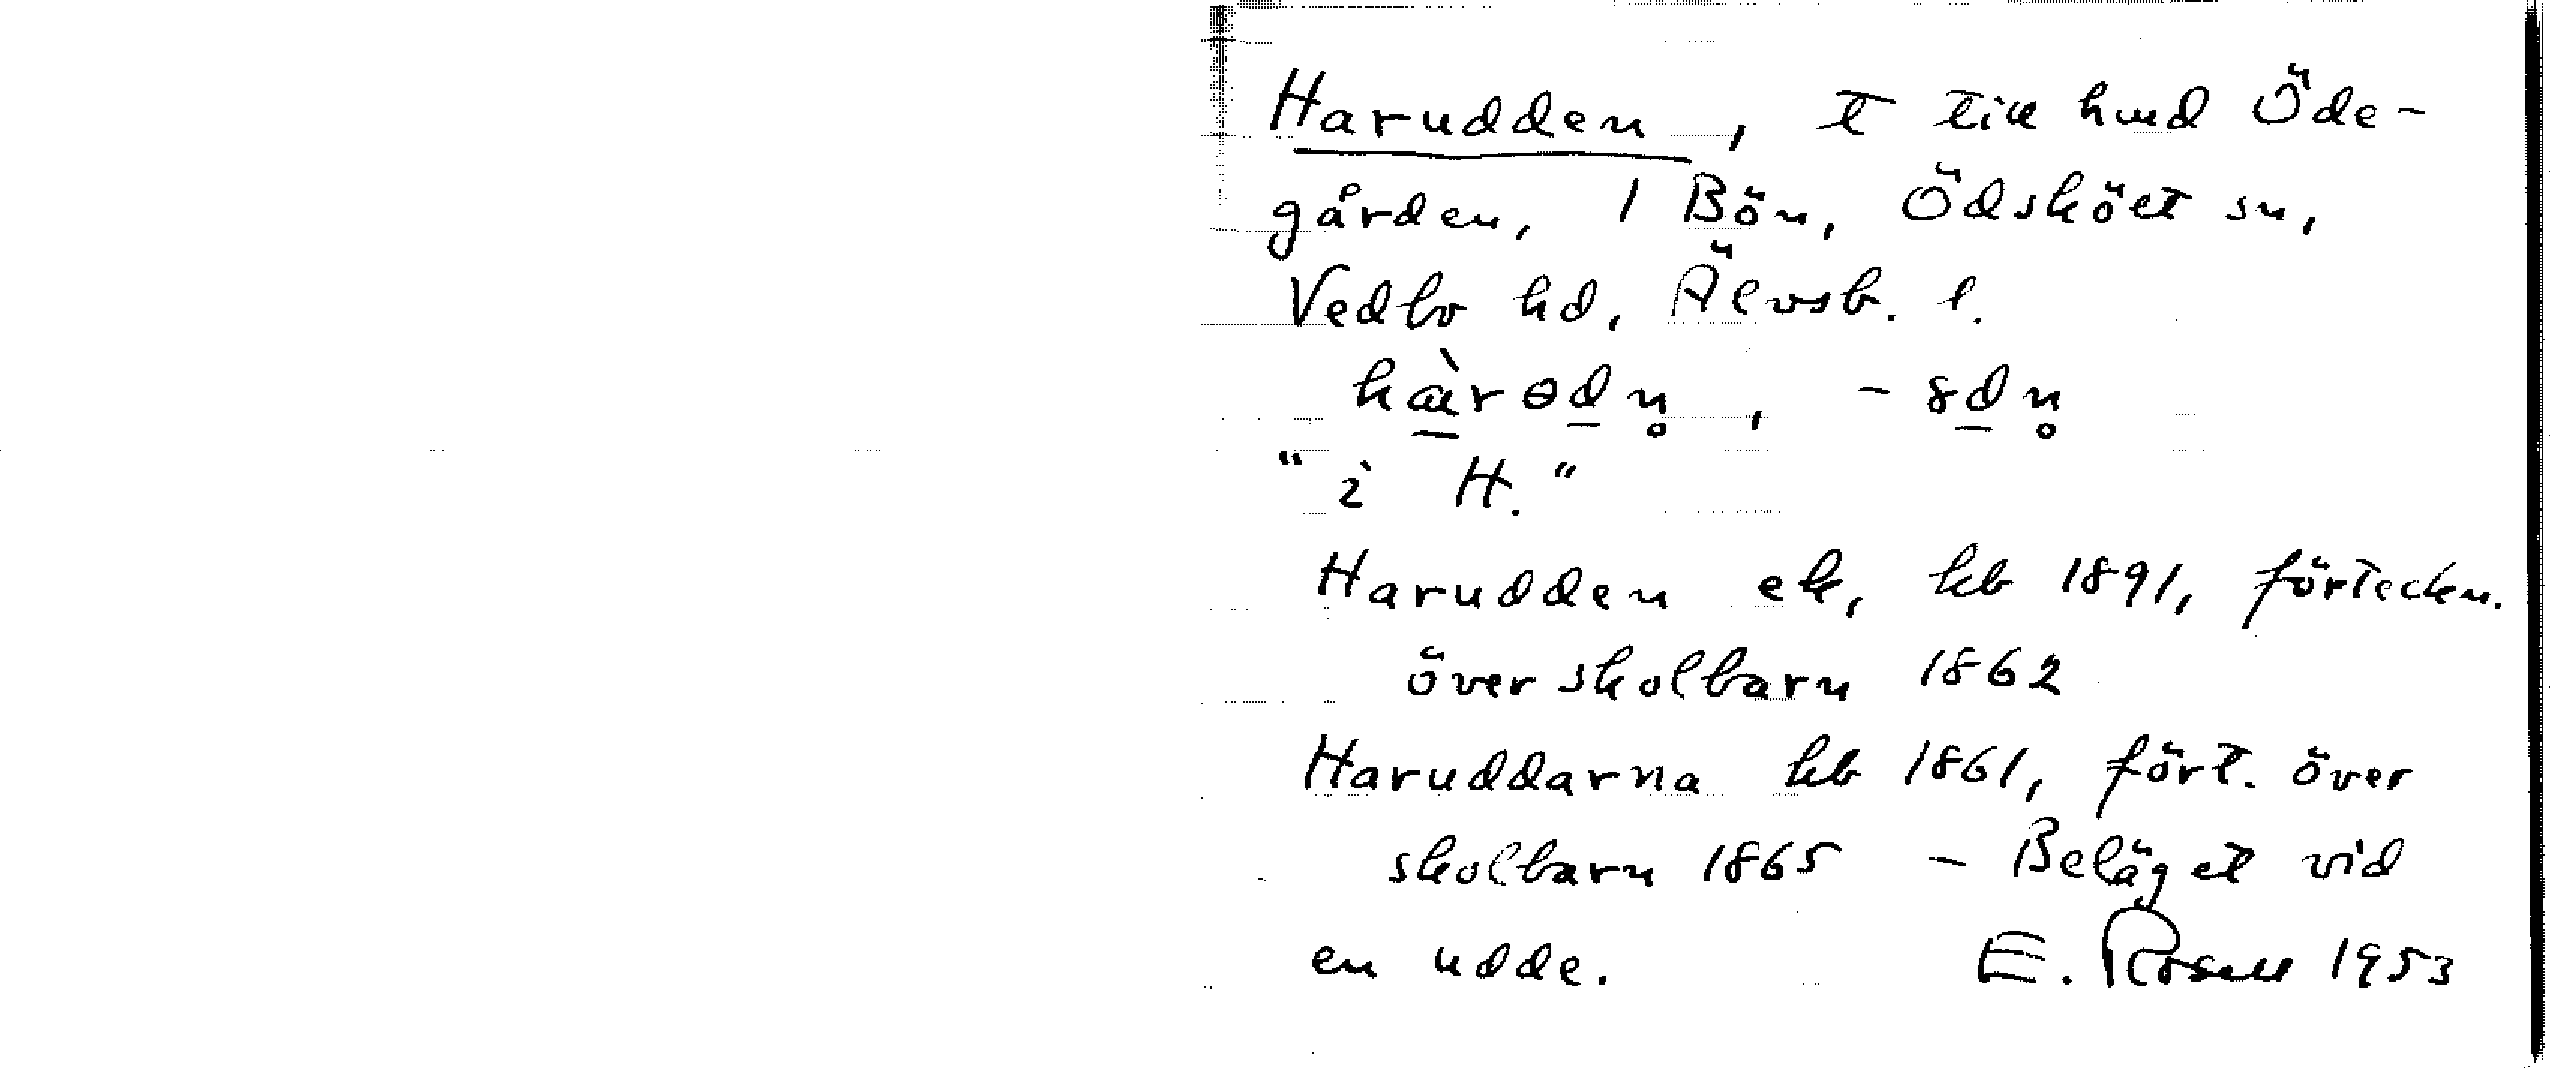 Harudden, t till hmd Öde-
gården, 1 Bön, Ödskölt sn,
Vedbo hd, Älvsb. l.
hæ̀rɵdn̥, -8dn̥
"i H."
Harudden ek, kb 1891, förteckn.
över skolbarn 1862
Haruddarna kb 1861, fört. över
skolbarn 1865 - Beläget vid
en udde. E. Rosell 1953